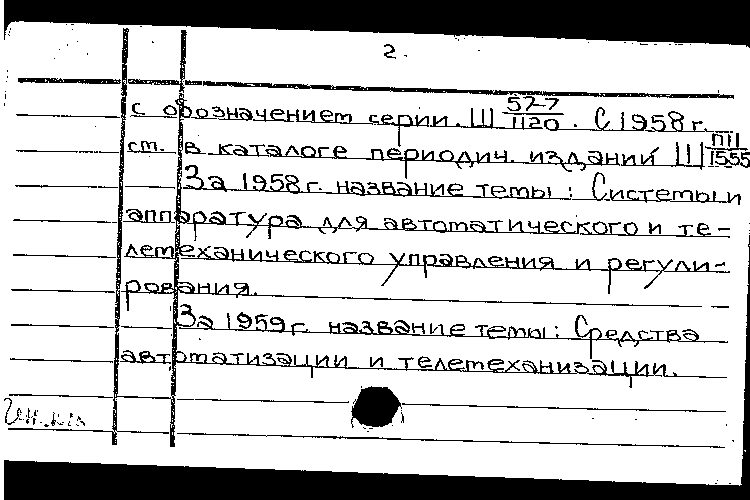 2.
с обозначением серии. Ш 57-7/1120. С 1958 г.
ст. в каталоге периодич. изданий Ш П11/1555
За 1958 г. название темы: Системы и
аппаратура для автоматического и те-
летеханического управления и регули-
рования.
За 1959 г. название темы: Средства
автоматизации и телемеханизации.